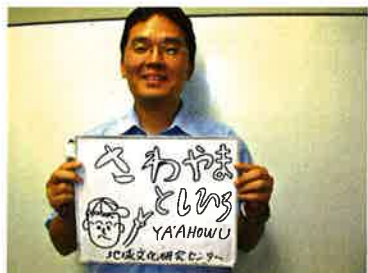 さわやま
としひろ
YA'AHOWU
地域文化研究センター